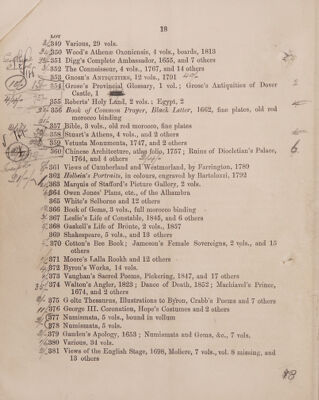 18
LOT
349 Various, 29 vols.
350 Wood's Athenæ Oxoniensis, 4 vols., boards, 1813
351 Digg's Complete Ambassador, 1655, and 7 others
352 The Connoisseur, 4 vols., 1767, and 14 others
353 Grose's Antiquities, 12 vols., 1791
354 Grose's Provincial Glossary, 1 vol.; Grose's Antiquities of Dover
Castle, 1
355 Roberts' Holy Land, 2 vols.; Egypt, 2
356 Book of Common Prayer, Black Letter, 1662, fine plates, old red
morocco binding
357 Bible, 3 vols., old red morocco, fine plates
358 Stuart's Athens, 4 vols., and 2 others
359 Vetusta Monumenta, 1747, and 2 others
360 Chinese Architecture, atlas folio, 1757; Ruins of Diocletian's Palace,
1764, and 4 others
361 Views of Cumberland and Westmorland, by Farrington, 1789
362 Holbein's Portraits, in colours, engraved by Bartolozzi, 1792
363 Marquis of Stafford's Picture Gallery, 2 vols.
364 Owen Jones' Plans, etc., of the Alhambra
365 White's Selborne and 12 others
366 Book of Gems, 3 vols., full morocco binding
367 Leslie's Life of Constable, 1845, and 6 others
368 Gaskell's Life of Brönte, 2 vols., 1857
369 Shakespeare, 5 vols., and 13 others
370 Cotton's Bee Book; Jameson's Female Sovereigns, 2 vols., and 15
others
371 Moore's Lalla Rookh and 12 others
372 Byron's Works, 14 vols.
373 Vaughan's Sacred Poems, Pickering, 1847, and 17 others
374 Walton's Angler, 1823; Dance of Death, 1852; Machiavel's Prince,
1674, and 2 others
375 Goltz Thesaurus, Illustrations to Byron, Crabb's Poems and 7 others
376 George III. Coronation, Hope's Costumes and 2 others
377 Numismata, 5 vols., bound in vellum
378 Numismata, 5 vols.
379 Camden's Apology, 1653; Numismata and Gems, &c., 7 vols.
380 Various, 34 vols.
381 Views of the English Stage, 1698, Moliere, 7 vols., vol. 8 missing, and
13 others